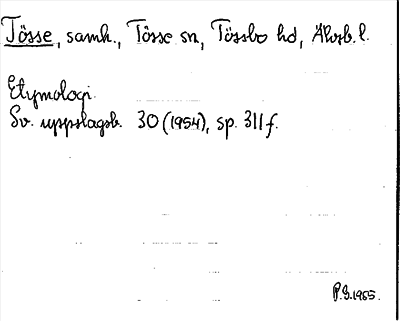 Tösse, samh., Tösse sn, Tössbo hd, Älvsb. l.
Etymologi.
Sv. uppslagsb. 30 (1954), sp. 311 f.
P.G. 1965.